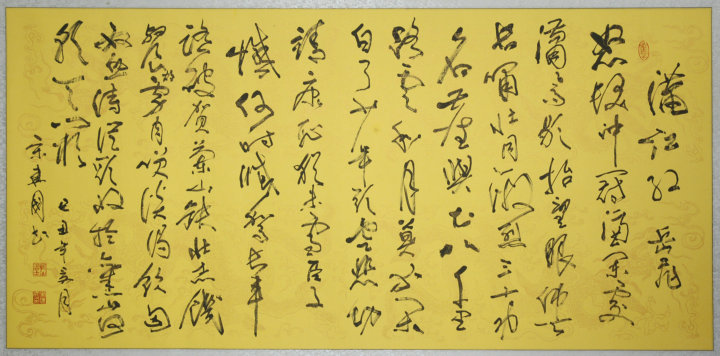 满江红 岳飛
怒髮冲冠凭阑處
潇々雨歇抬望眼仰天
长啸壮怀激烈三十功
名尘與土八千里
路云和月莫等闲
白了少年头空悲切
靖康耻犹未雪臣子
憾何时灭驾长车
踏破贺兰山缺壮志饥
餐胡虏肉笑谈渴饮匈
奴血待从头收拾旧山河
朝天阙
己丑年月
國书